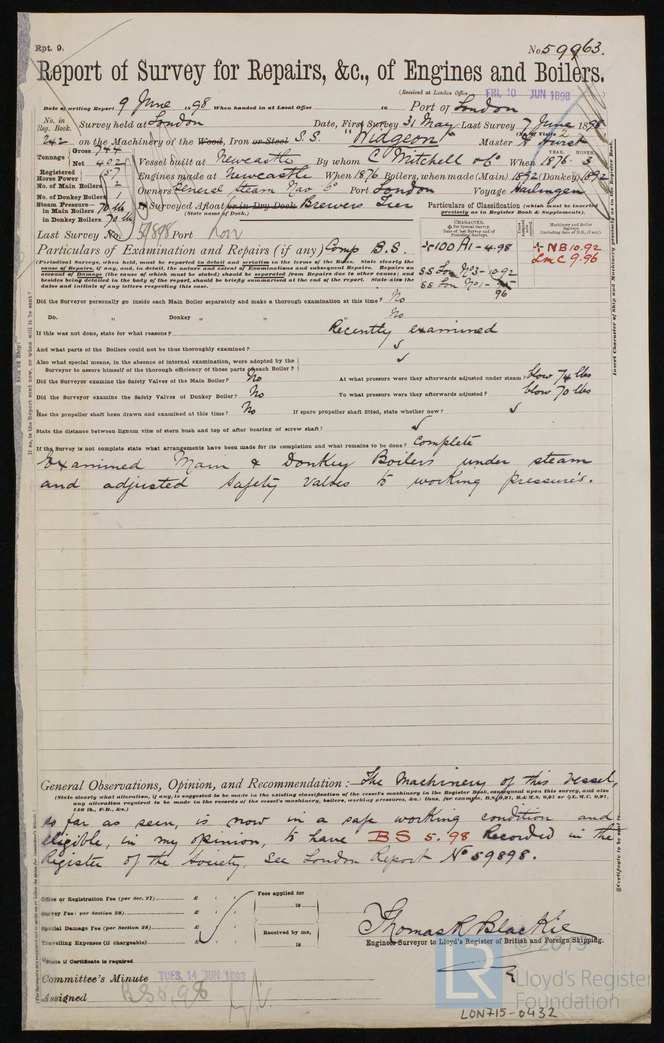 Rpt. 9.
No. 59963.
Report of Survey for Repairs, &c., of Engines and Boilers.
(Received at London Office FRI. 10 JUN 1898
Date of writing Report 9 June 1898 When handed in at Local Office 18 Port of London
No. in Reg. Book. Survey held at London Date, First Survey 31 May Last Survey 7 June 1898
(No. of Visits 2)
242 on the Machinery of the Wood, Iron or Steel S.S. "Widgeon" Master Hurst
Tonnage Gross 744 Net 402 Vessel built at Newcastle By whom C Mitchell & Co When 1876 . 3
Registered Horse Power 157 Engines made at Newcastle When 1876 Boilers, when made (Main) 1892 (Donkey) 1892
No. of Main Boilers 2
No. of Donkey Boilers 1 Owners General Steam Nav Co Port London Voyage Harlingen
Steam Pressure in Main Boilers 70 lb If Surveyed Afloat or in Dry Dock Brewers Tier
in Donkey Boilers 70 lb (State name of Dock.)
Particulars of Classification (which must be inserted precisely as in Register Book & Supplements).
Last Survey No. 59898 Port Lon
CHARACTER.
YEAR. MONTH.
Particulars of Examination and Repairs (if any) Comp B.S.
+100 A1 - 4.98
+ NB 10.92
LMC 9.96
SS Lon No 3 - 10.92
SS Lon No 1 - 96
(Periodical Surveys, when held, must be reported in detail and seriatim in the terms of the Rules. State clearly the cause of Repairs, if any, and, in detail, the nature and extent of Examinations and subsequent Repairs. Repairs on account of Damage (the cause of which must be stated) should be separated from Repairs due to other causes; and besides being detailed in the body of the report, should be briefly summarised at the end of the report. State also the dates and initials of any letters respecting this case.
Did the Surveyor personally go inside each Main Boiler separately and make a thorough examination at this time? No
Do. " Donkey " " No
If this was not done, state for what reasons? Recently examined
And what parts of the Boilers could not be thoroughly examined? ✓
Also what special means, in the absence of internal examination, were adopted by the Surveyor to assure himself of the thorough efficiency of those parts of each Boiler? ✓
Did the Surveyor examine the Safety Valves of the Main Boiler? No At what pressure were they afterwards adjusted under steam? blow 74 lbs
Did the Surveyor examine the Safety Valves of Donkey Boiler? No To what pressure were they afterwards adjusted? blow 70 lbs
Has the propeller shaft been drawn and examined at this time? No If spare propeller shaft fitted, state whether new? ✓
State the distance between lignum vitæ of stern bush and top of after bearing of screw shaft? ✓
If the Survey is not complete state what arrangements have been made for its completion and what remains to be done? Complete
Examined Main & Donkey Boilers under steam
and adjusted Safety Valves to working pressures.
General Observations, Opinion, and Recommendation:- The Machinery of this Vessel,
(State clearly what alteration, if any, is suggested to be made in the existing classification of the vessel's machinery in the Register Book, consequent upon this survey, and also any alteration required to be made in the records of the vessel's machinery, boilers, working pressures, &c.; thus, for example,
as far as seen, is now in a safe working condition and
eligible, in my opinion, to have BS 5.98 Recorded in the
Register of the Society. See London Report No 59898.
Office or Registration Fee (per Sec. 27) £ : :
Survey Fee (per Section 28) £ : :
Special Damage Fee (per Section 28) £ : :
Travelling Expenses (if chargeable) £ : :
Fees applied for
18
Received by me,
18
Thomas R Blackie
Engineer Surveyor to Lloyd's Register of British and Foreign Shipping.
State if Certificate is required
Committee's Minute TUES. 14 JUN 1898
Assigned BS 5,98
LR
© 2019
Lloyd's Register
Foundation
LON715-0432